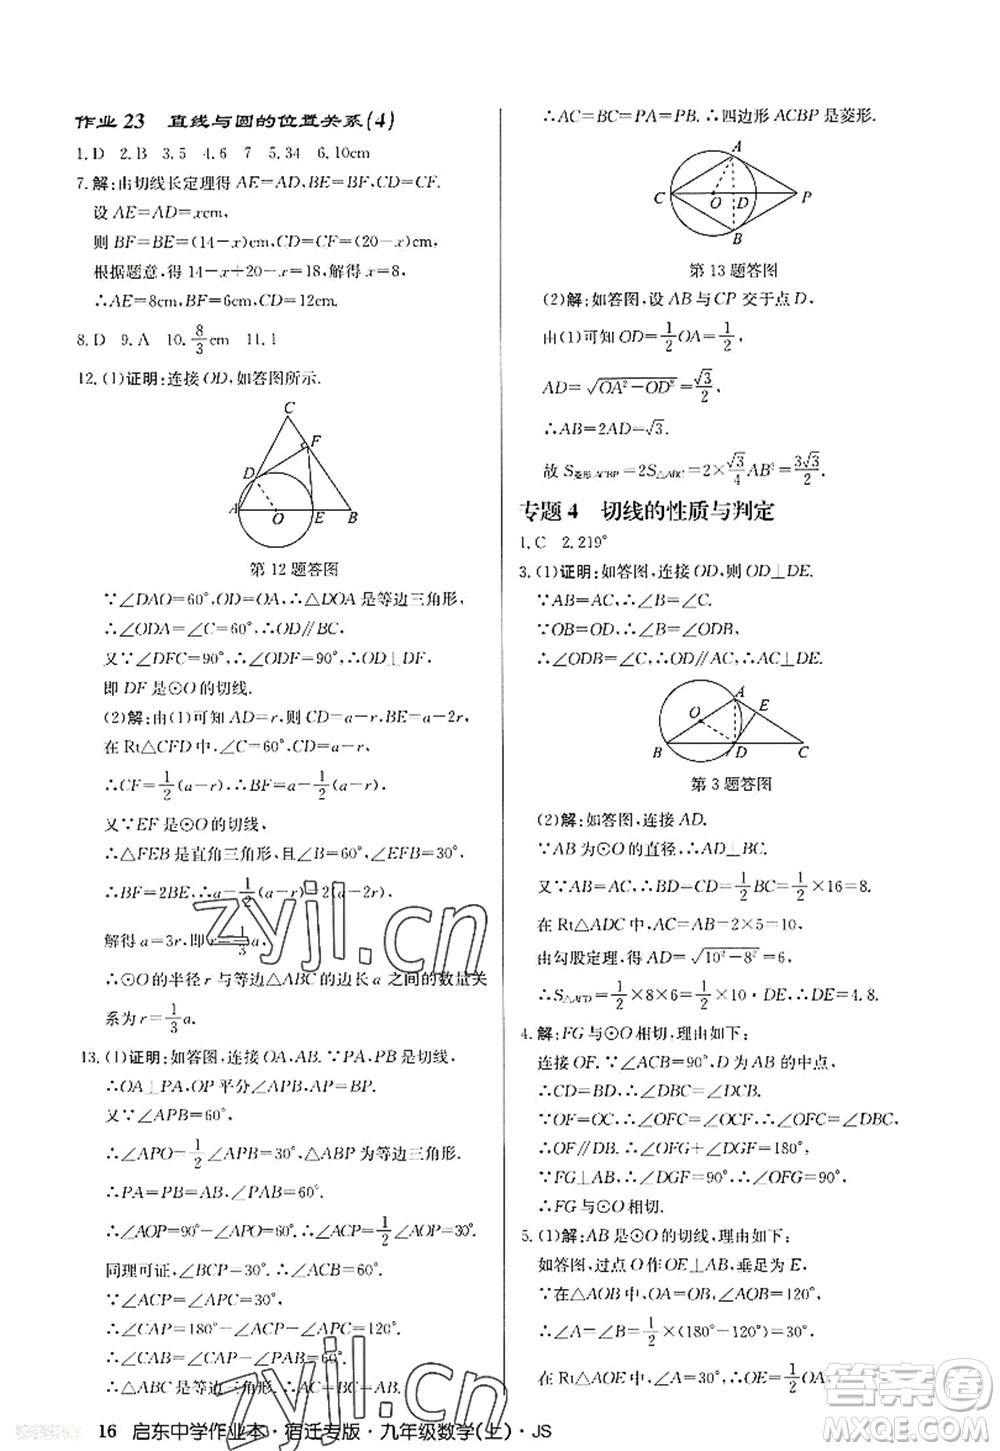 作业 23　直线与圆的位置关系(4)
1. D　2. B　3. 5　4. 6　7　5. 34　6. 10cm
7. 解:由切线长定理得 AE=AD,BE=BF,CD=CF.
设 AE=AD=xcm,
则 BF=BE=(14-x)cm,CD=CF=(20-x)cm,
根据题意,得 14-x+20-x=18,解得 x=8,
∴AE=8cm,BF=6cm,CD=12cm.
8. D　9. A　10. 8/3 cm　11. 1
12. (1)证明:连接 OD,如答图所示.
C
F
D
A
O
E
B
第 12 题答图
∵∠DAO=60°,OD=OA,∴△DOA 是等边三角形,
∴∠ODA=∠C=60°,∴OD∥BC.
又∵∠DFC=90°,∴∠ODF=90°,∴OD⊥DF.
即 DF 是⊙O 的切线.
(2)解:由(1)可知 AD=r,则 CD=a-r,BE=a-2r,
在 Rt△CFD 中,∠C=60°,CD=a-r,
∴CF=1/2(a-r),∴BF=a-1/2(a-r).
又∵EF 是⊙O 的切线,
∴△FEB 是直角三角形,且∠B=60°,∠EFB=30°,
∴BF=2BE,∴a-1/2(a-r)=2(a-2r),
解得 a=3r,即 r=1/3 a,
∴⊙O 的半径 r 与等边△ABC 的边长 a 之间的数量关
系为 r=1/3 a.
13. (1)证明:如答图,连接 OA,AB. ∵PA,PB 是切线,
∴OA⊥PA,OP 平分∠APB,PA=PB.
又∵∠APB=60°,
∴∠APO=1/2∠APB=30°,△ABP 为等边三角形.
∴PA=PB=AB,∠PAB=60°.
∴∠AOP=90°-∠APO=60°,∴∠ACP=1/2∠AOP=30°.
同理可证,∠BCP=30°.
∵∠ACP=∠APC=30°,
∴∠CAP=180°-∠ACP-∠APC=120°.
∴∠CAB=∠CAP-∠PAB=60°,
∴△ABC 是等边三角形.
∴AC=BC=PA=PB. ∴四边形 ACBP 是菱形.
A
C
O
D
P
B
第 13 题答图
(2)解:如答图,设 AB 与 CP 交于点 D,
由(1)可知 OD=1/2 OA=1/2,
AD=√(OA²-OD²)=√3/2,
∴AB=2AD=√3.
故 S菱形ACBP=2S△ABC=2×√3/4 AB²=3√3/2.
专题 4　切线的性质与判定
1. C　2. 219°
3. (1)证明:如答图,连接 OD,则 OD⊥DE.
∵AB=AC,∴∠B=∠C.
∵OB=OD,∴∠B=∠ODB,
∴∠ODB=∠C,∴OD∥AC,∴AC⊥DE.
A
E
O
B
D
C
第 3 题答图
(2)解:如答图,连接 AD.
∵AB 为⊙O 的直径,∴AD⊥BC.
又∵AB=AC,∴CD=BD=1/2 BC=1/2×16=8.
在 Rt△ADC 中,AC=AB=2×5=10,
由勾股定理,得 AD=√(10²-8²)=6,
∴S△ACD=1/2×8×6=1/2×10·DE,∴DE=4.8.
4. 解:FG 与⊙O 相切,理由如下:
连接 OF. ∵∠ACB=90°,D 为 AB 的中点,
∴CD=BD,∴∠DBC=∠DCB.
∵OF=OC,∴∠OFC=∠OCF,∴∠OFC=∠DBC,
∴OF∥DB. ∴∠OFG+∠DGF=180°.
∵FG⊥AB,∴∠DGF=90°,∴∠OFG=90°,
∴FG 与⊙O 相切.
5. (1)解:AB 是⊙O 的切线,理由如下:
如答图,过点 O 作 OE⊥AB,垂足为 E.
∵在△AOB 中,OA=OB,∠AOB=120°,
∴∠A=∠B=1/2×(180°-120°)=30°,
在 Rt△AOE 中,∠A=30°,∴OE=1/2 OA=1/2
16　启东中学作业本·宿迁专版·九年级数学(上)·JS
zyjl.cn
zyjl.cn
答案圈
MXQE.COM